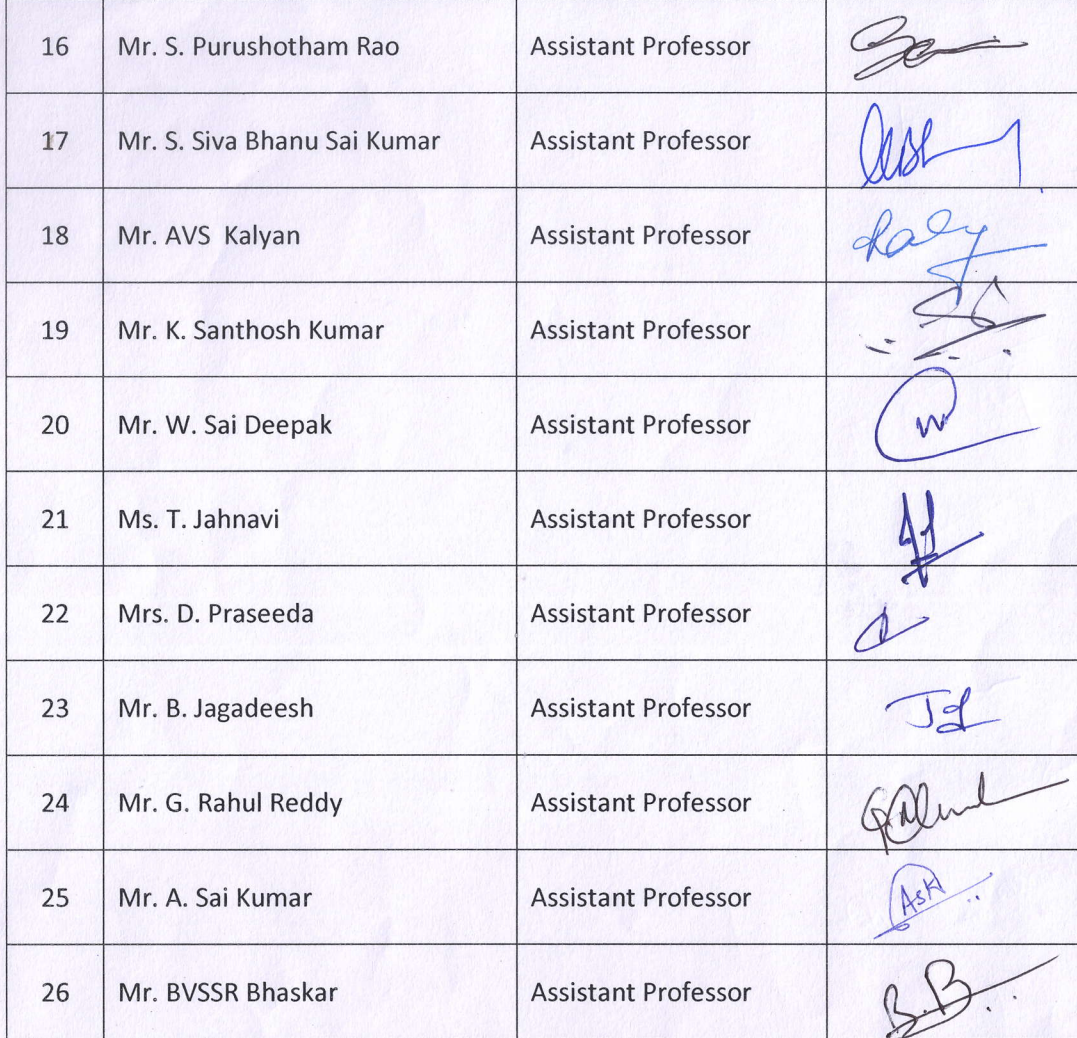 16 Mr. S. Purushotham Rao Assistant Professor
17 Mr. S. Siva Bhanu Sai Kumar Assistant Professor
18 Mr. AVS  Kalyan Assistant Professor
19 Mr. K. Santhosh Kumar Assistant Professor
20 Mr. W. Sai Deepak Assistant Professor
21 Ms. T. Jahnavi Assistant Professor
22 Mrs. D. Praseeda Assistant Professor
23 Mr. B. Jagadeesh Assistant Professor
24 Mr. G. Rahul Reddy Assistant Professor
25 Mr. A. Sai Kumar Assistant Professor ASK
26 Mr. BVSSR Bhaskar Assistant Professor B.B